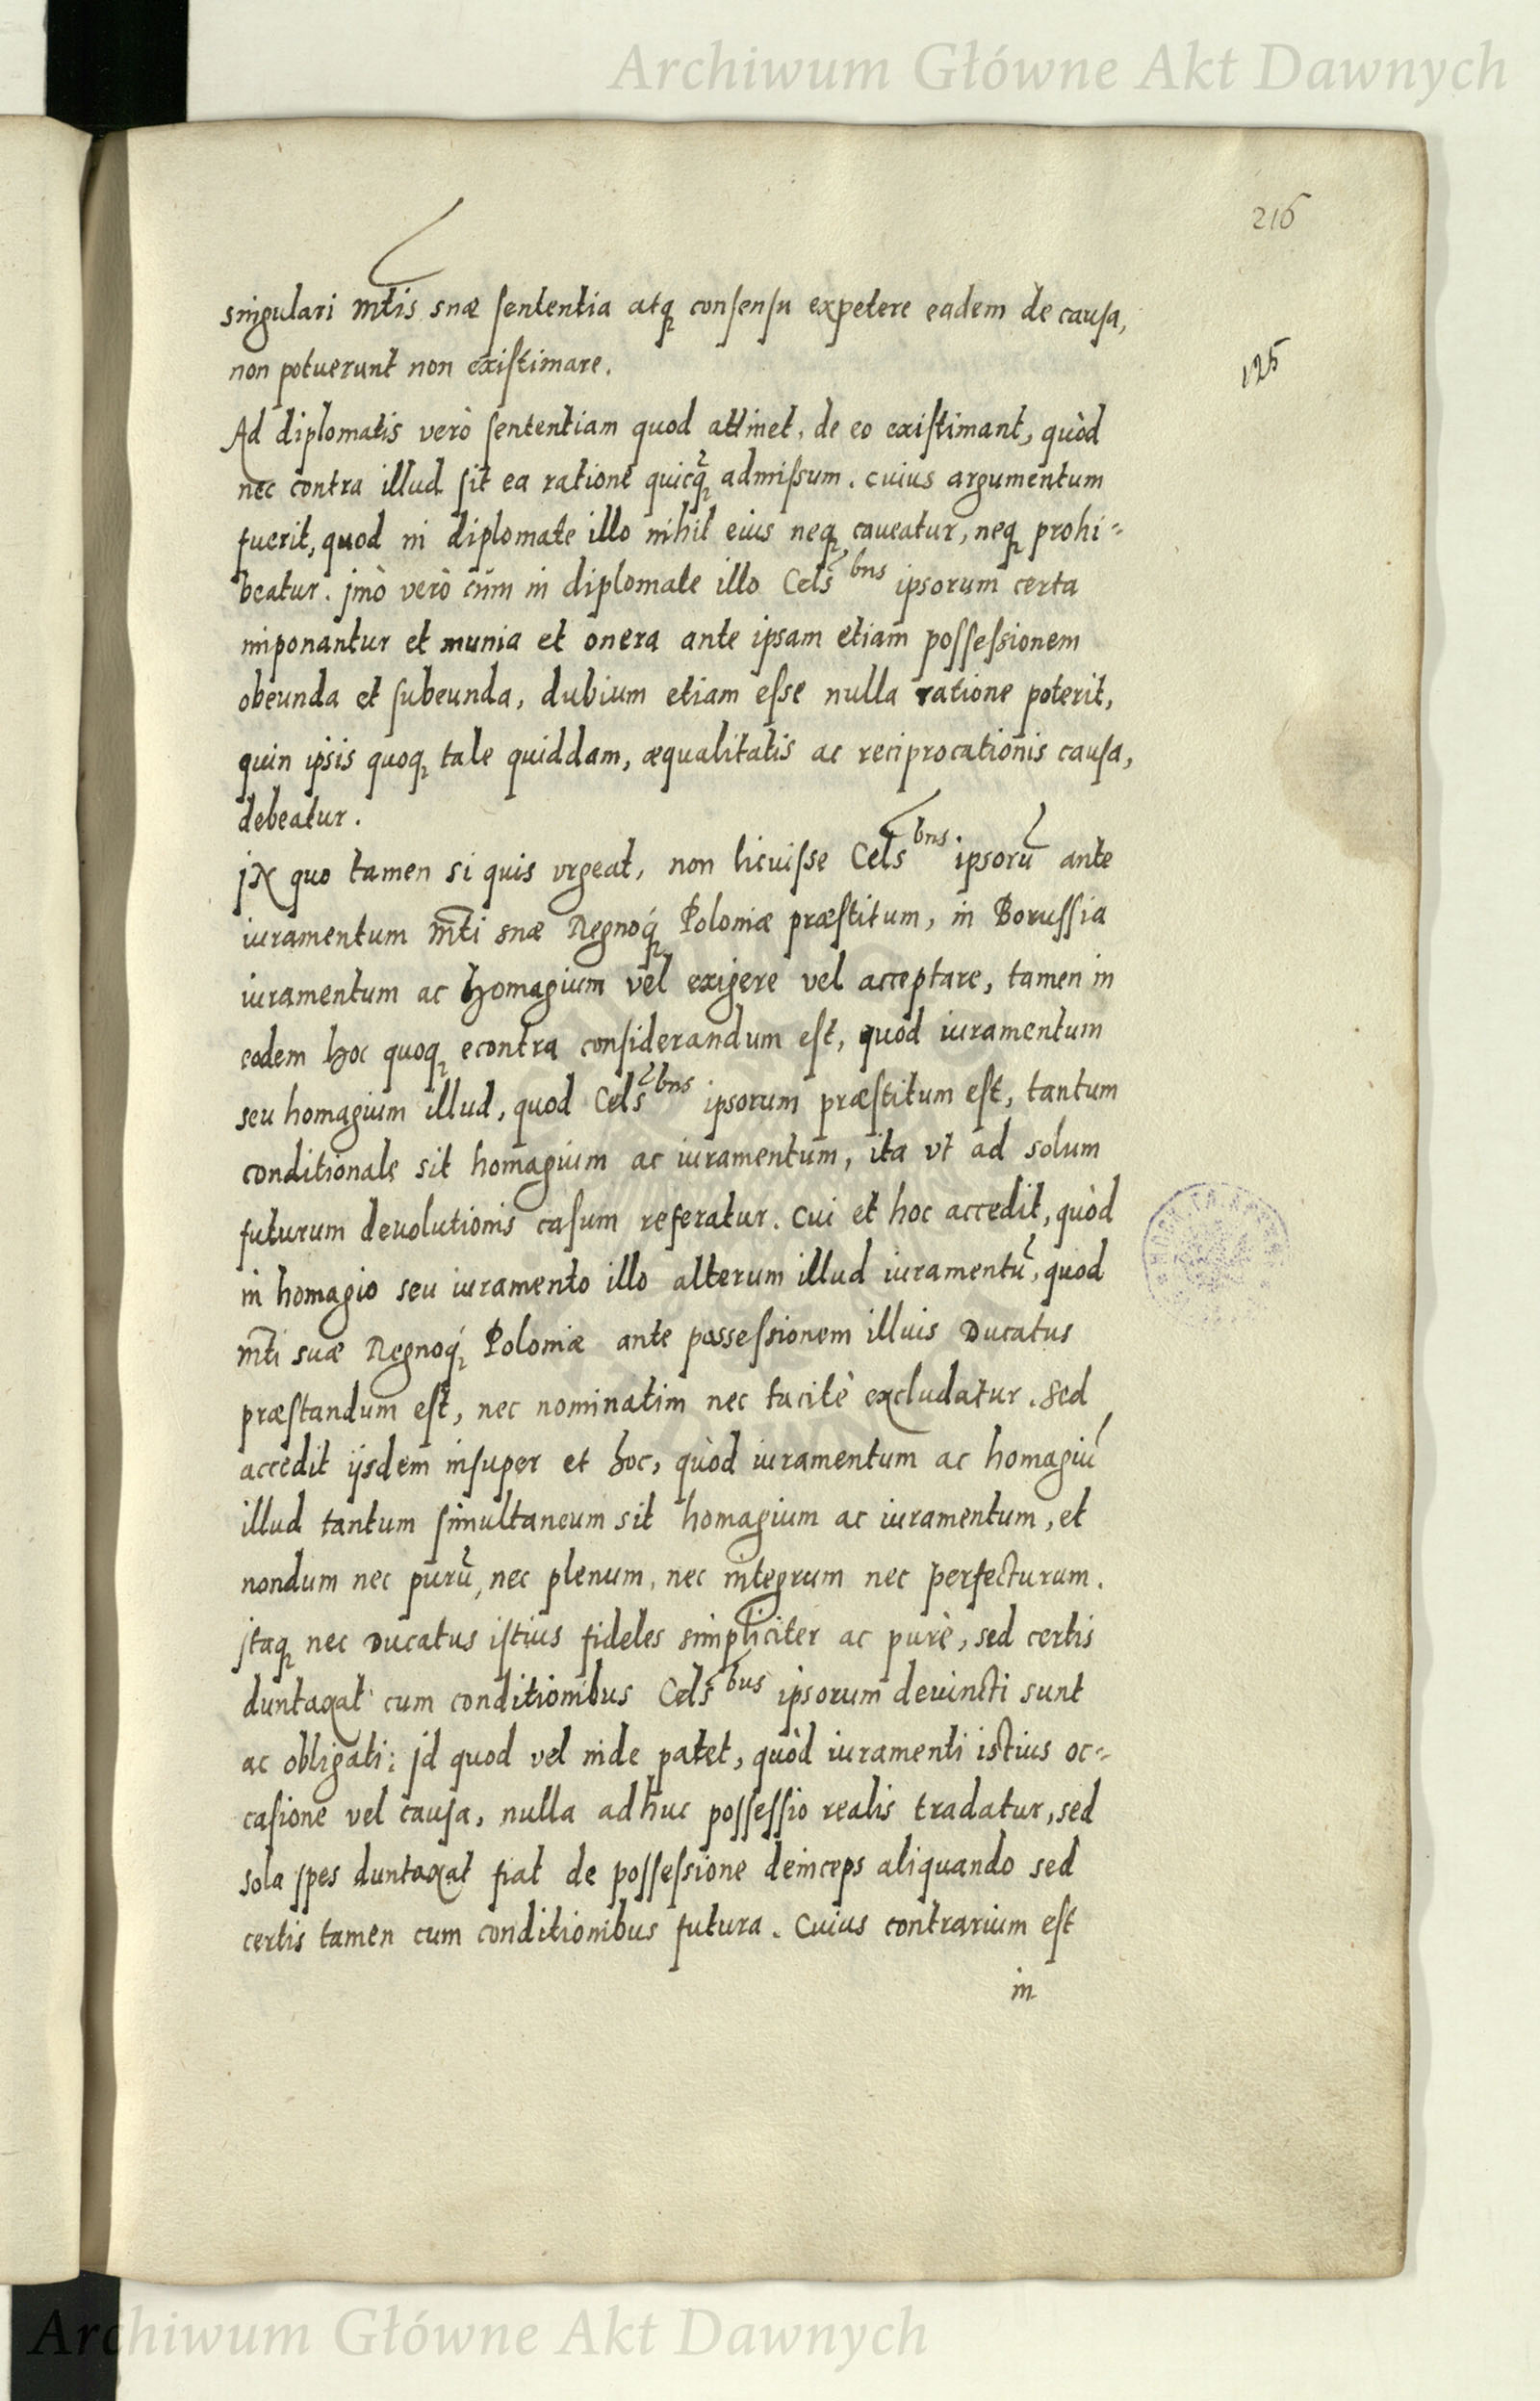 Archiwum Główne Akt Dawnych
216
singulari Mtis suæ sententia atq consensu expetere eadem de causa,
non potuerunt non existimare.
125
Ad diplomatis verò sententiam quod attinet, de eo existimant, quòd
nec contra illud sit ea ratione quicq̃ admissum. cuius argumentum
fuerit, quod in diplomate illo nihil eius neq caveatur, neq prohi=
beatur. jmò verò cùm in diplomate illo Cels^bus ipsorum certa
imponantur et munia et onera ante ipsam etiam possessionem
obeunda et subeunda, dubium etiam esse nulla ratione poterit,
quin ipsis quoq tale quiddam, æqualitatis ac reciprocationis causa,
debeatur.
jN quo tamen si quis vrgeat, non licuisse Cels^bus ipsorũ ante
iuramentum Mti suæ Regnoq́ Poloniæ præstitum, in Borussia
iuramentum ac homagium vel exigere vel acceptare, tamen in
eodem hoc quoq econtra considerandum est, quòd iuramentum
seu homagium illud, quod Cels^bus ipsorum præstitum est, tantum
conditionale sit homagium ac iuramentum, ita vt ad solum
futurum deuolutionis casum referatur. Cui et hoc accedit, quòd
in homagio seu iuramento illo alterum illud iuramentũ, quod
Mti suæ Regnoq́ Poloniæ ante possessionem illius Ducatus
præstandum est, nec nominatim nec tacitè excludatur. Sed
accedit ijsdem insuper et hoc, quòd iuramentum ac homagiũ
illud tantum simultaneum sit homagium ac iuramentum, et
nondum nec purũ, nec plenum, nec integrum nec perfecturum.
jtaq nec Ducatus istius fideles simpliciter ac purè, sed certis
duntaxat cum conditionibus Cels^bus ipsorum deuincti sunt
ac obligati: jd quod vel inde patet, quòd iuramenti istius oc=
casione vel causa, nulla adhuc possessio realis tradatur, sed
sola spes duntaxat fiat de possessione deinceps aliquando sed
certis tamen cum conditionibus futura. Cuius contrarium est
in
Archiwum Główne Akt Dawnych